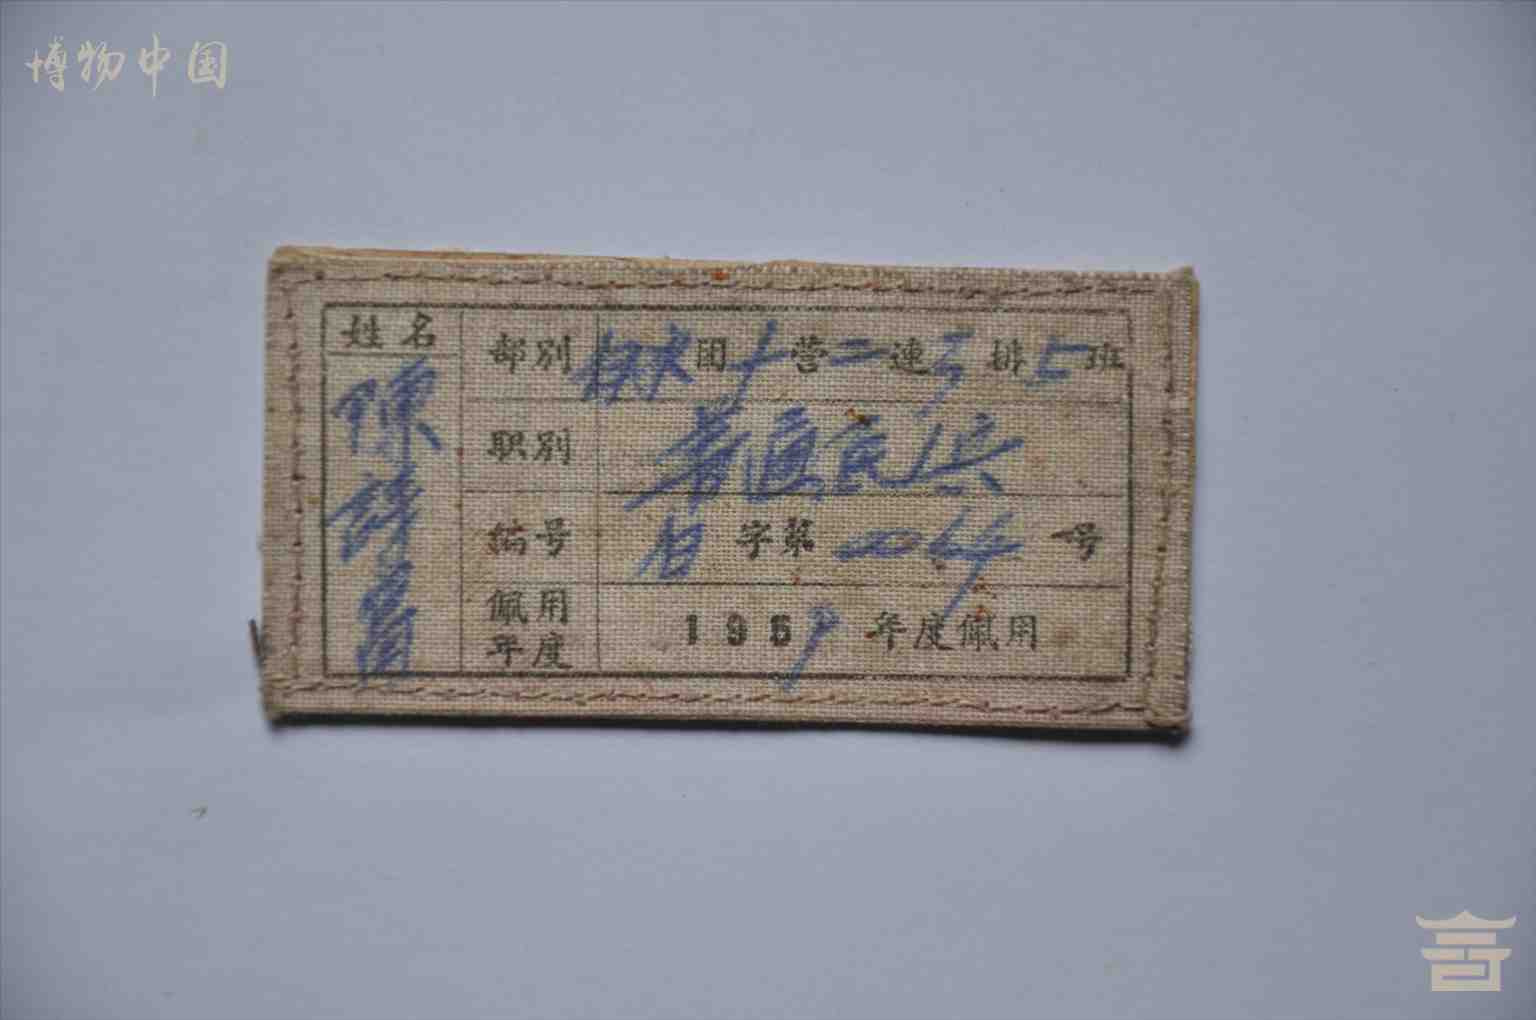 博物中国
姓名
陳
部别 团十营二连三排五班
职别 普通民兵
编号 字第0064号
佩用年度 1959年度佩用